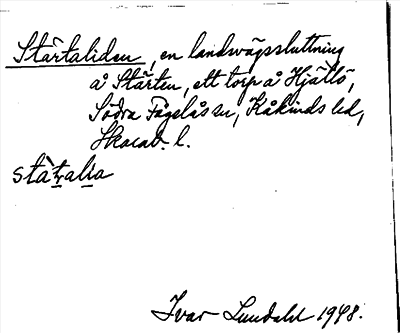 Stärtaliden, en landsvägssluttning
å Stärten, ett torp å Hjällö,
Södra Fågelås sn, Kåkinds hd,
Skarab. l.
Ivar Lundahl 1948.